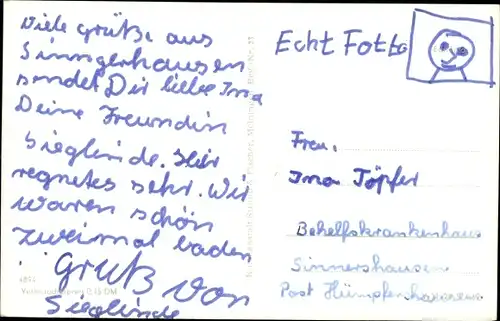 Viele Grüße aus
Sinngerhausen
sendet Dir liebe Ina
Deine Freundin
Sieglinde. Hir
regnetes sehr. Wir
waren schön
zweimal baden
Gruß von
Sieglinde
Echt Fotto
Freu.
Ina Töpfer
Behelfskrankenhaus
Sinnershausen
Post Hümpfershausen